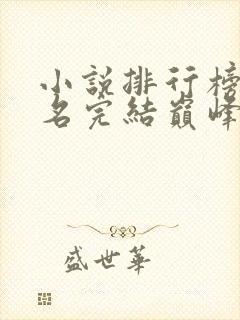 小説排行榜
名完結巔峰
盛世華